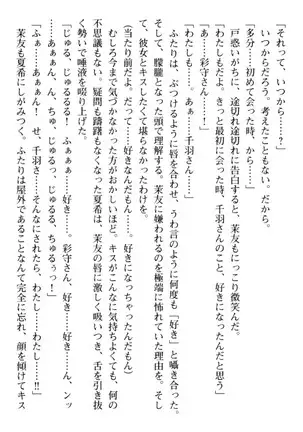 「それって、いつから……？」
いつからだろう。考えたこともない。だから。
「多分……初めて会った時、から……」
戸惑いがちに、途切れ途切れに告白すると、茉友もにっこり微笑んだ。
「わたしもだよ。きっと最初に会った時、千羽さんのこと、好きになったんだと思う」
「ふぁ……彩守さん……」
「ふぁぁ……千羽さん……」
ふたりは、ぶつけるように唇を合わせ、うわ言のように何度も「好き」と囁き合った。
そして、朦朧となった頭で理解する。茉友に嫌われるのを極端に怖れていた理由を。そし
て、彼女とキスしたくて堪らなかったわけを。
(当たり前だよ。だって……好きなんだもん……好きになっちゃったんだもん)
むしろ今まで気づかなかった方がおかしいほど。キスがこんなに気持ちよくても、何の
不思議もない。疑問も躊躇もなくなった夏希は、茉友の唇に激しく吸いつき、舌を引き抜
く勢いで唾液を吸り上げた。
「じゅる、じゅるるる！　ふぁぁ……好き……彩守さん、好き……好き……ん、ンッ
……あぁぁん、ん、ちゅ、じゅるっ、じゅるる、ちゅるぅっ！」
「ふぁ……あぁぁん！　せ、千羽……そんなにされたら、わたし……わたし……!!」
茉友も夏希にしがみつく。ふたりは屋外であることなんて完全に忘れ、顔を傾けてキス